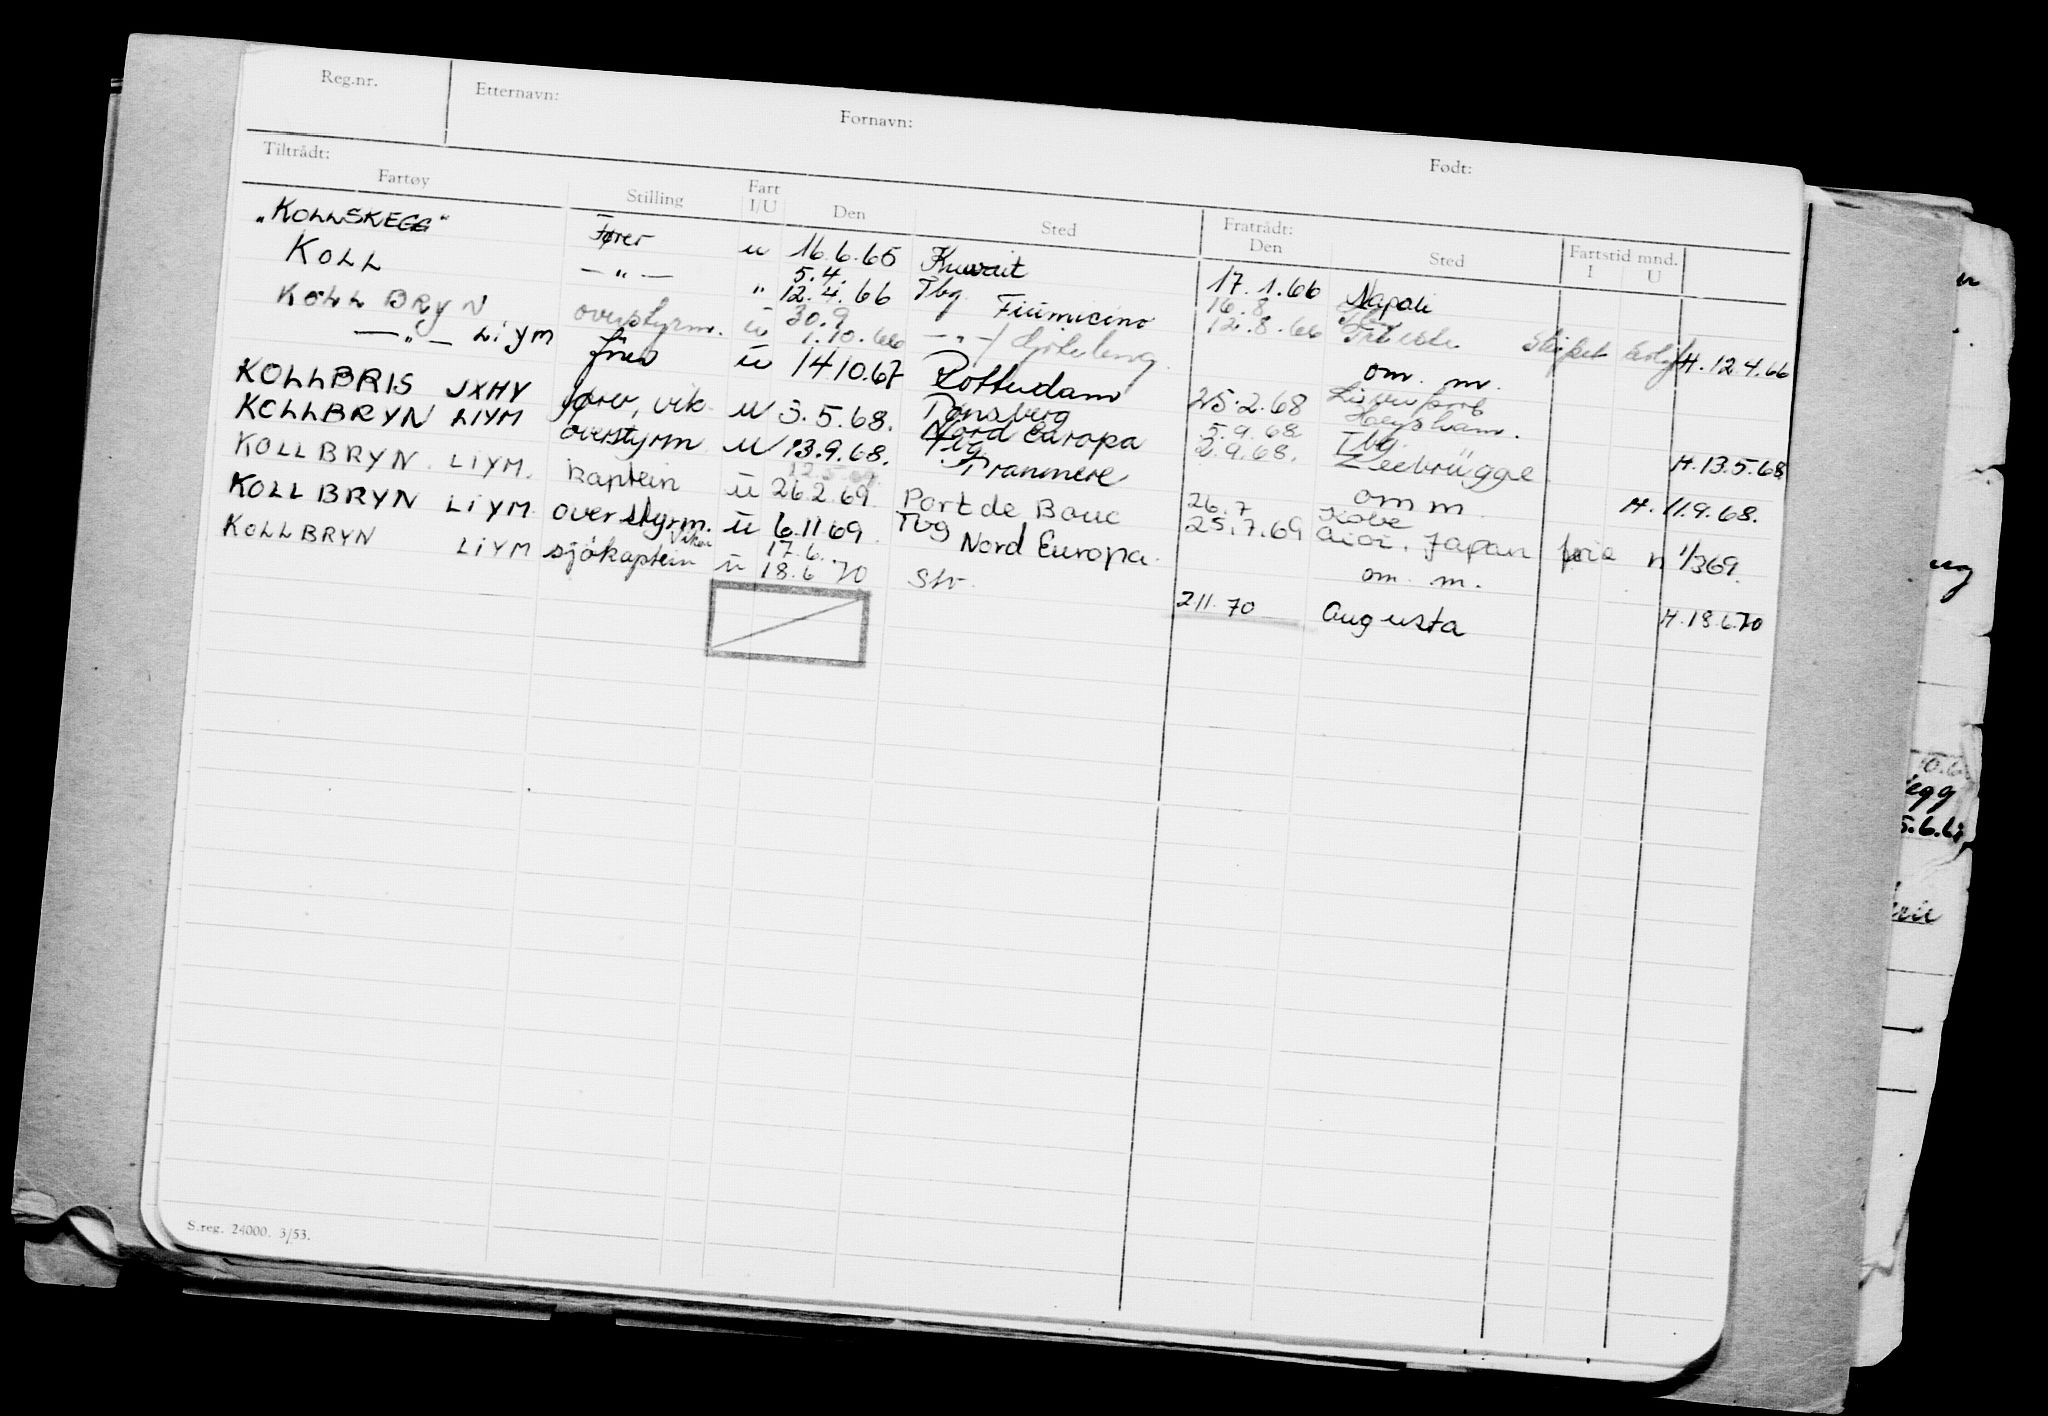 Reg.nr. Etternavn: Fornavn: Født:
Tiltrådt: Fratrådt:
Fartøy Stilling Fart I/U Den Sted Den Sted Fartstid mnd. I U
"KOLLSKEGG" Fører u 16.6.65 Kuwait 17.1.66 Napoli
KOLL — " — " 5.4. 12.4.66 Tbg. Fiumicino 16.8 12.8.66 Skiftet H.12.4.66
KOLLBRYN overstyrm. u 30.9 1.10.66 — " — / Göteborg om. m.
— " — LIYM u 14.10.67 Rotterdam 25.2.68
KOLLBRIS JXHY fører, vik. u 3.5.68. Tønsberg Nord Europa 5.9.68 2.9.68. Tbg. Zeebrügge H.13.5.68
KOLLBRYN LIYM overstyrm u 13.9.68. Tbg Tranmere om m H.11.9.68.
KOLLBRYN. LIYM. Kaptein u 26.2.69. Port de Bouc 26.7 25.7.69 Kobe Aioi, Japan 1/369.
KOLLBRYN LIYM overstyrm. u 6.11.69. Tbg Nord Europa. om. m.
KOLLBRYN LIYM sjökaptein u 17.6. 18.6.70 211.70 Augusta H.18.6.70
S.reg. 24000. 3/53.
egg